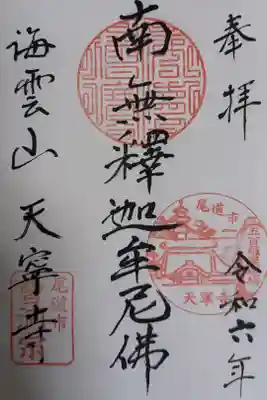 奉拝
令和六年
南無釋迦牟尼佛
海雲山 天寧寺
尾道市
天寧寺
尾道市